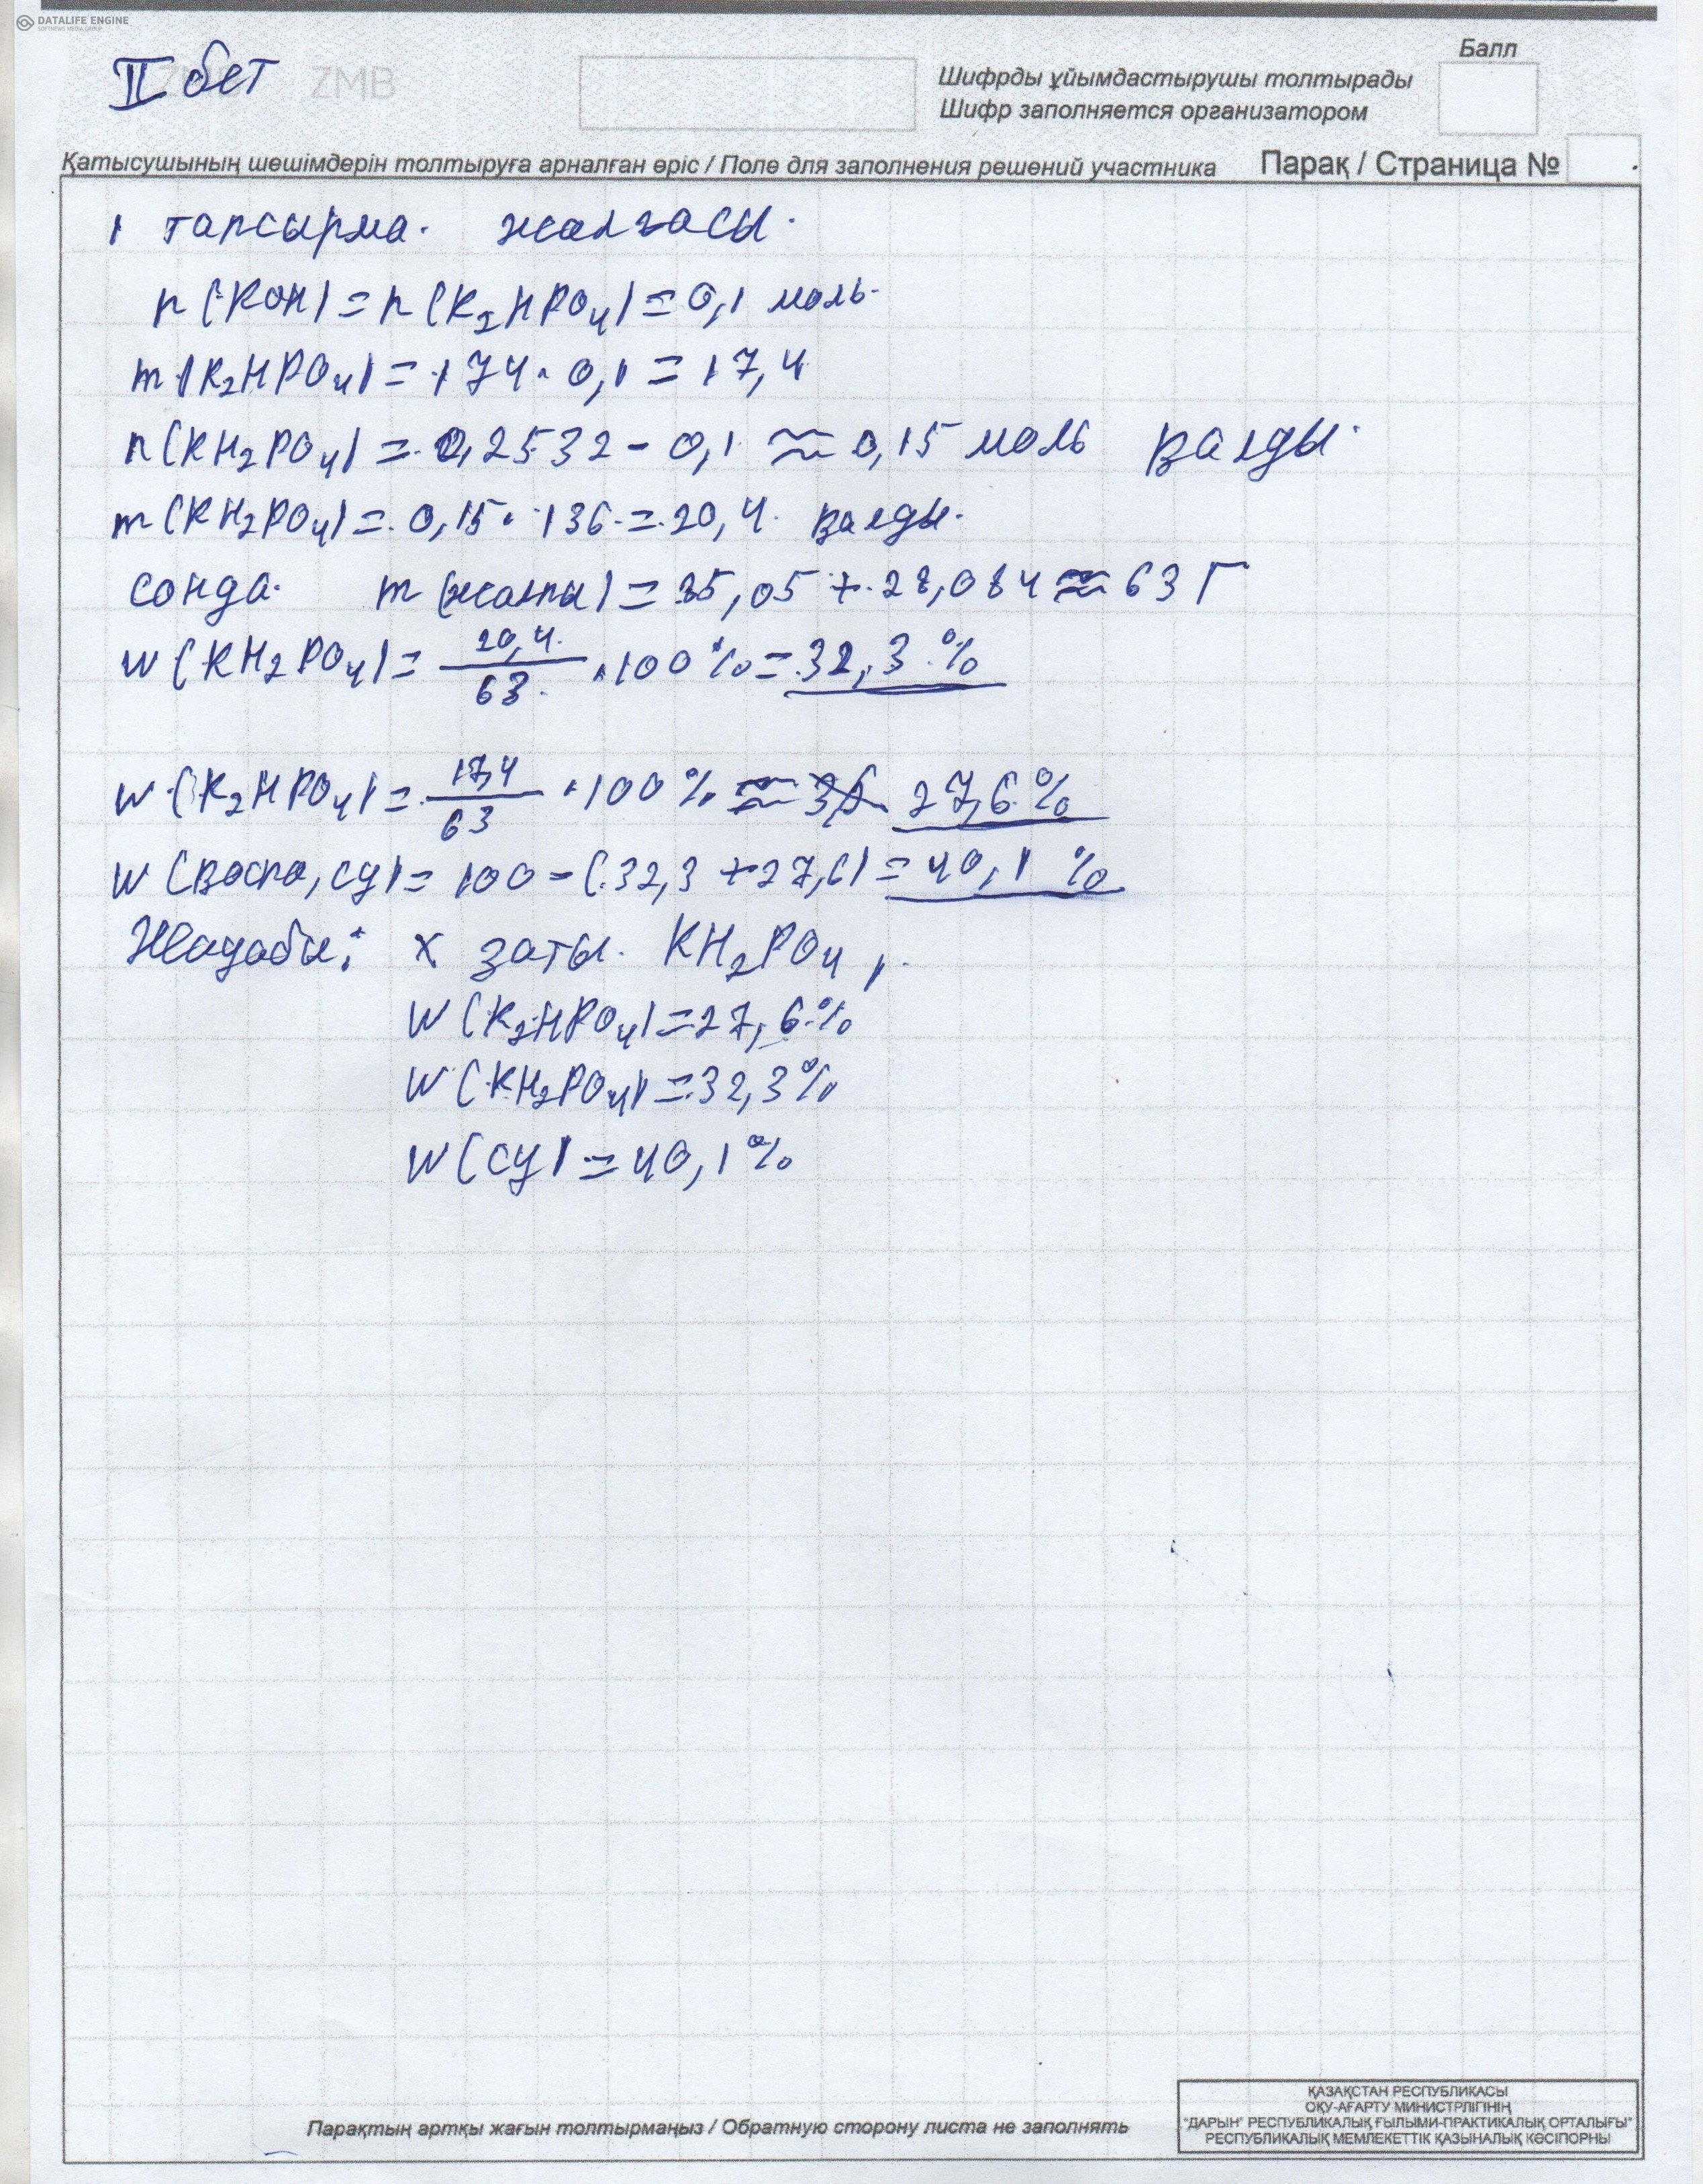 DATALIFE ENGINE
SOFTNEWS MEDIA GROUP
II бет ZMB
Балл
Шифрды ұйымдастырушы толтырады
Шифр заполняется организатором
Қатысушының шешімдерін толтыруға арналған өріс / Поле для заполнения решений участника Парақ / Страница №
1 тапсырма. жалғасы.
n(KOH) = n(K₂HPO₄) = 0,1 моль.
m(K₂HPO₄) = 174 · 0,1 = 17,4
n(KH₂PO₄) = 0,2532 - 0,1 ≈ 0,15 моль қалды.
m(KH₂PO₄) = 0,15 · 136 = 20,4 қалды.
сонда. m(жалпы) = 35,05 + 28,084 ≈ 63 г
w(KH₂PO₄) = 20,4/63 · 100% = 32,3%
w(K₂HPO₄) = 17,4/63 · 100% ≈ 27,6%
w(қоспа, су) = 100 - (32,3 + 27,6) = 40,1 %
Жауабы: x заты. KH₂PO₄,
w(K₂HPO₄) = 27,6%
w(KH₂PO₄) = 32,3%
w(су) = 40,1%
Парақтың артқы жағын толтырмаңыз / Обратную сторону листа не заполнять
ҚАЗАҚСТАН РЕСПУБЛИКАСЫ
ОҚУ-АҒАРТУ МИНИСТРЛІГІНІҢ
"ДАРЫН" РЕСПУБЛИКАЛЫҚ ҒЫЛЫМИ-ПРАКТИКАЛЫҚ ОРТАЛЫҒЫ"
РЕСПУБЛИКАЛЫҚ МЕМЛЕКЕТТІК ҚАЗЫНАЛЫҚ КӘСІПОРНЫ